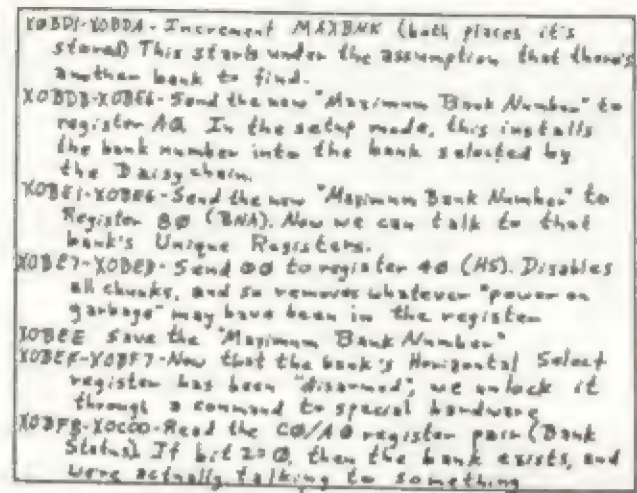 X0BD1-X0BDA - Increment MAXBNK (both places it's
stored) This starts under the assumption that there's
another bank to find.
X0BDB-X0BE6 - Send the new "Maximum Bank Number" to
register A0. In the setup mode, this installs
the bank number into the bank selected by
the Daisychain.
X0BE1-X0BE6 - Send the new "Maximum Bank Number" to
Register 80 (BNA). Now we can talk to that
bank's Unique Registers.
X0BE7-X0BED - Send 00 to register 40 (HS). Disables
all chunks, and so removes whatever "power on
garbage" may have been in the register
X0BEE Save the "Maximum Bank Number"
X0BEF-X0BF7 - Now that the bank's Horizontal Select
register has been "disarmed", we unlock it
through a command to special hardware
X0BF8-X0C00 - Read the C0/A0 register pair (Bank
Status). If bit 2=0, then the bank exists, and
were actually talking to something